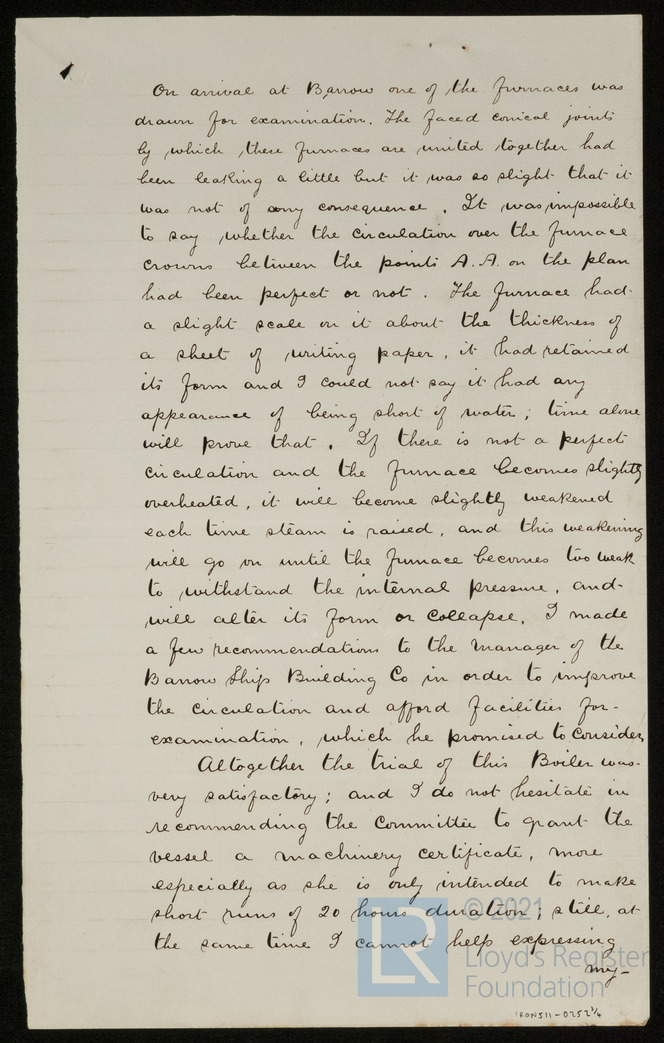 On arrival at Barrow one of the furnaces was
drawn for examination. The faced conical joints
by which these furnaces are united together had
been leaking a little but it was so slight that it
was not of any consequence. It was impossible
to say whether the circulation over the furnace
crowns between the points A.A. on the plan
had been perfect or not. The furnace had
a slight scale on it about the thickness of
a sheet of writing paper, it had retained
its form and I could not say it had any
appearance of being short of water; time alone
will prove that. If there is not a perfect
circulation and the furnace becomes slightly
overheated, it will become slightly weakened
each time steam is raised, and this weakening
will go on until the furnace becomes too weak
to withstand the internal pressure, and
will alter its form or collapse. I made
a few recommendations to the manager of the
Barrow Ship Building Co in order to improve
the circulation and afford facilities for
examination, which he promised to consider.
Altogether the trial of this Boiler was
very satisfactory; and I do not hesitate in
recommending the Committee to grant the
vessel a machinery certificate, more
especially as she is only intended to make
short runs of 20 hours duration; still, at
the same time I cannot help expressing
my-
© 2021
LR
Lloyd's Register
Foundation
IRON511-0252 3/4